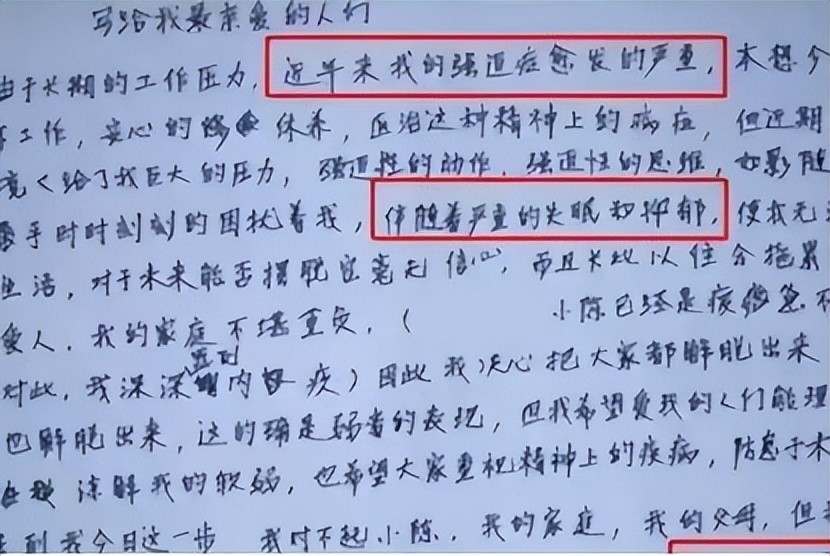 写给我最亲爱的人们
由于长期的工作压力，近半年来我的强迫症愈发的严重，本想今
工作，安心的休养，医治这种精神上的病症，但近期
境给了我巨大的压力，强迫性的动作，强迫性的思维，如影随
乎时时刻刻的困扰着我，伴随着严重的失眠和抑郁，使我无
生活，对于未来能否摆脱它毫无信心，而且长此以往会拖累
爱人，我的家庭不堪重负，（小陈已经是疲惫
对此，我深深感到内疚）因此我决心把大家都解脱出来
也解脱出来，这的确是弱者的表现，但我希望爱我的人们能理
谅解我的软弱，也希望大家重视精神上的疾病，防患于未
到我今日这一步 我对不起小陈，我的家庭，我的父母，但